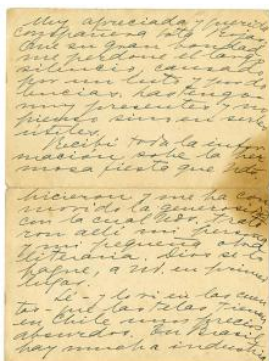 Muy apreciada y querida
compañera
que su gran bondad
me perdone el largo
silencio, causado
por un luto y
Las tengo
muy presentes y no
pienso sino en serles
útiles.
Recibí toda la infor
mación sobre la her
mosa fiesta que Uds
hicieron y me ha con
movido la generosidad
con la cual Uds.
allí mi persona
y mi pequeña obra
literaria. Dios se lo
pague, a Ud. en primer
lugar.
Sé y lo vi en las cuen
tas que las telas tienen
en Chile unos precios
absurdos. En Brasil
hay mucha industria